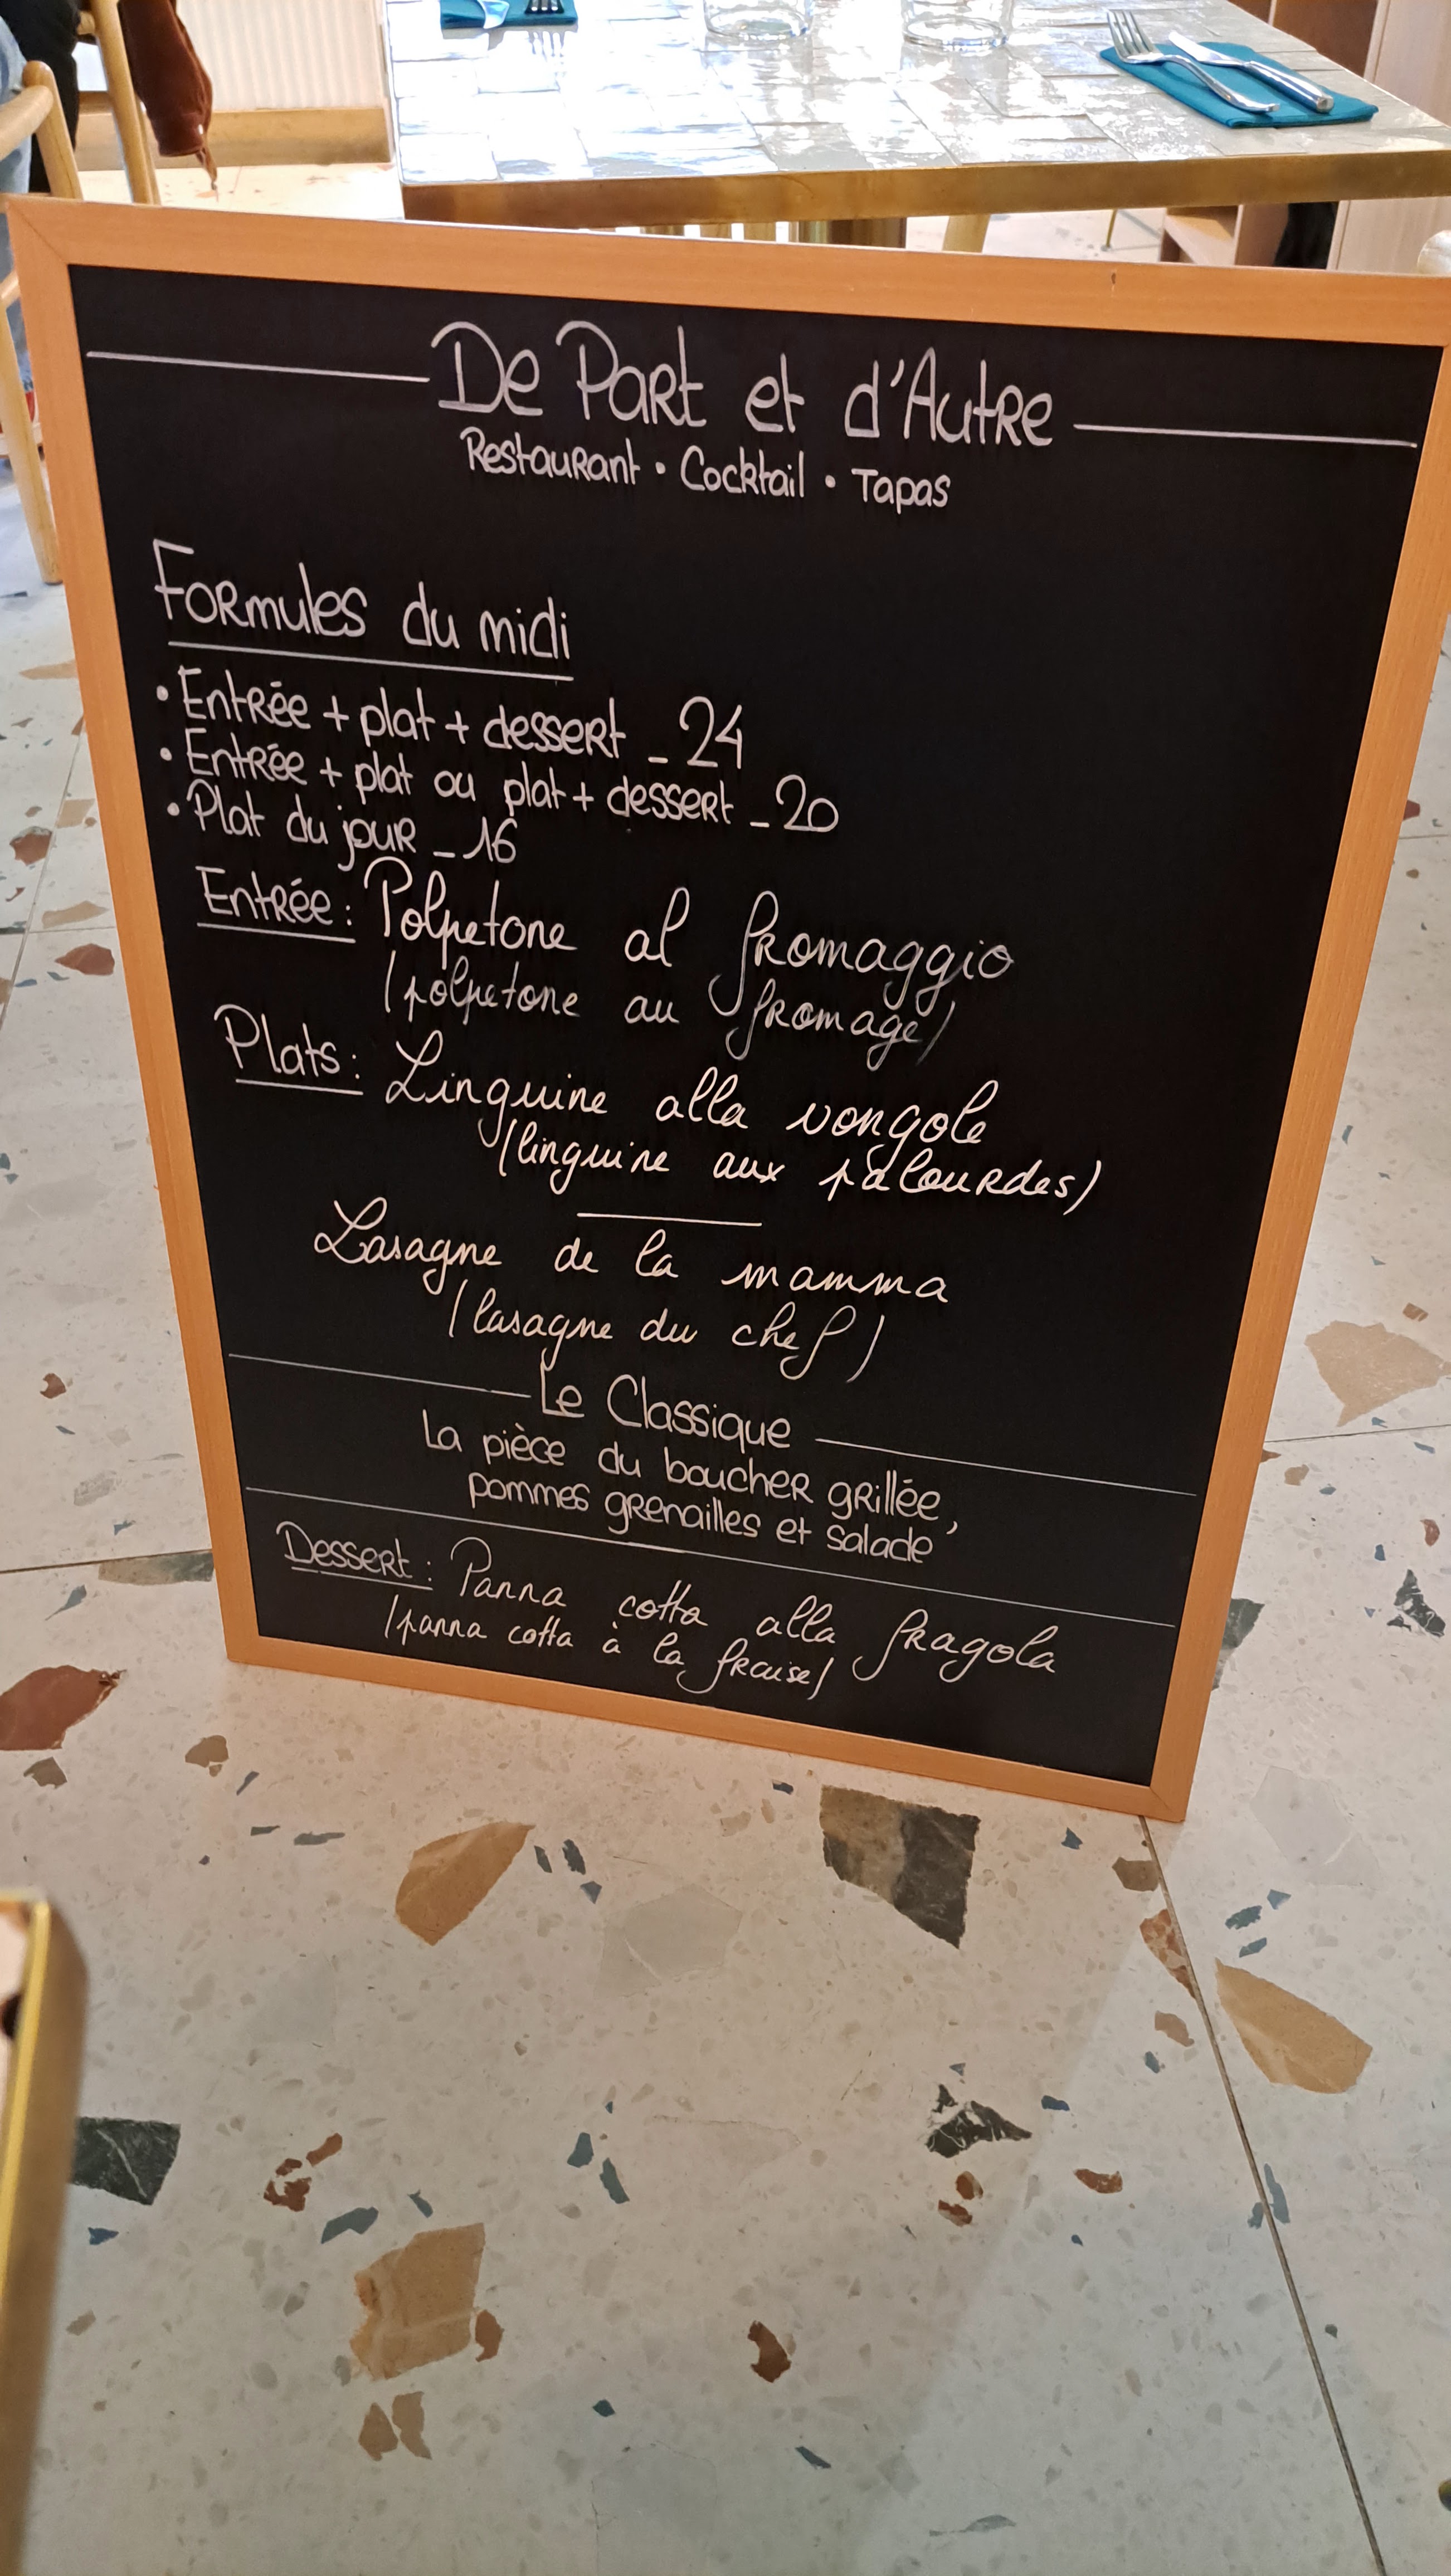 De Part et d'Autre
Restaurant • Cocktail • Tapas
Formules du midi
• Entrée + plat + dessert _ 24
• Entrée + plat ou plat + dessert _ 20
• Plat du jour _ 16
Entrée : Polpetone al fromaggio
(polpetone au fromage)
Plats : Linguine alla vongole
(linguine aux palourdes)
Lasagne de la mamma
(lasagne du chef)
Le Classique
La pièce du boucher grillée,
pommes grenailles et salade
Dessert : Panna cotta alla fragola
(panna cotta à la fraise)